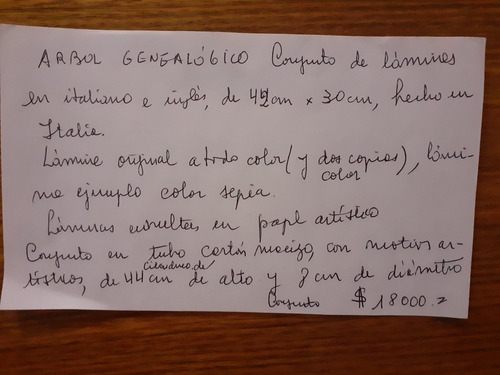 ARBOL GENEALÓGICO Conjunto de láminas
en italiano e inglés, de 42cm x 30cm, hecho en
Italia.
Lámina original a todo color (y dos copias), lámi-
color
na ejemplo color sepia.
Láminas envueltas en papel artístico
Conjunto en tubo cartón macizo, con motivos ar-
cilíndrico de
tísticos, de 44cm de alto y 8 cm de diámetro
Conjunto $ 18000.=